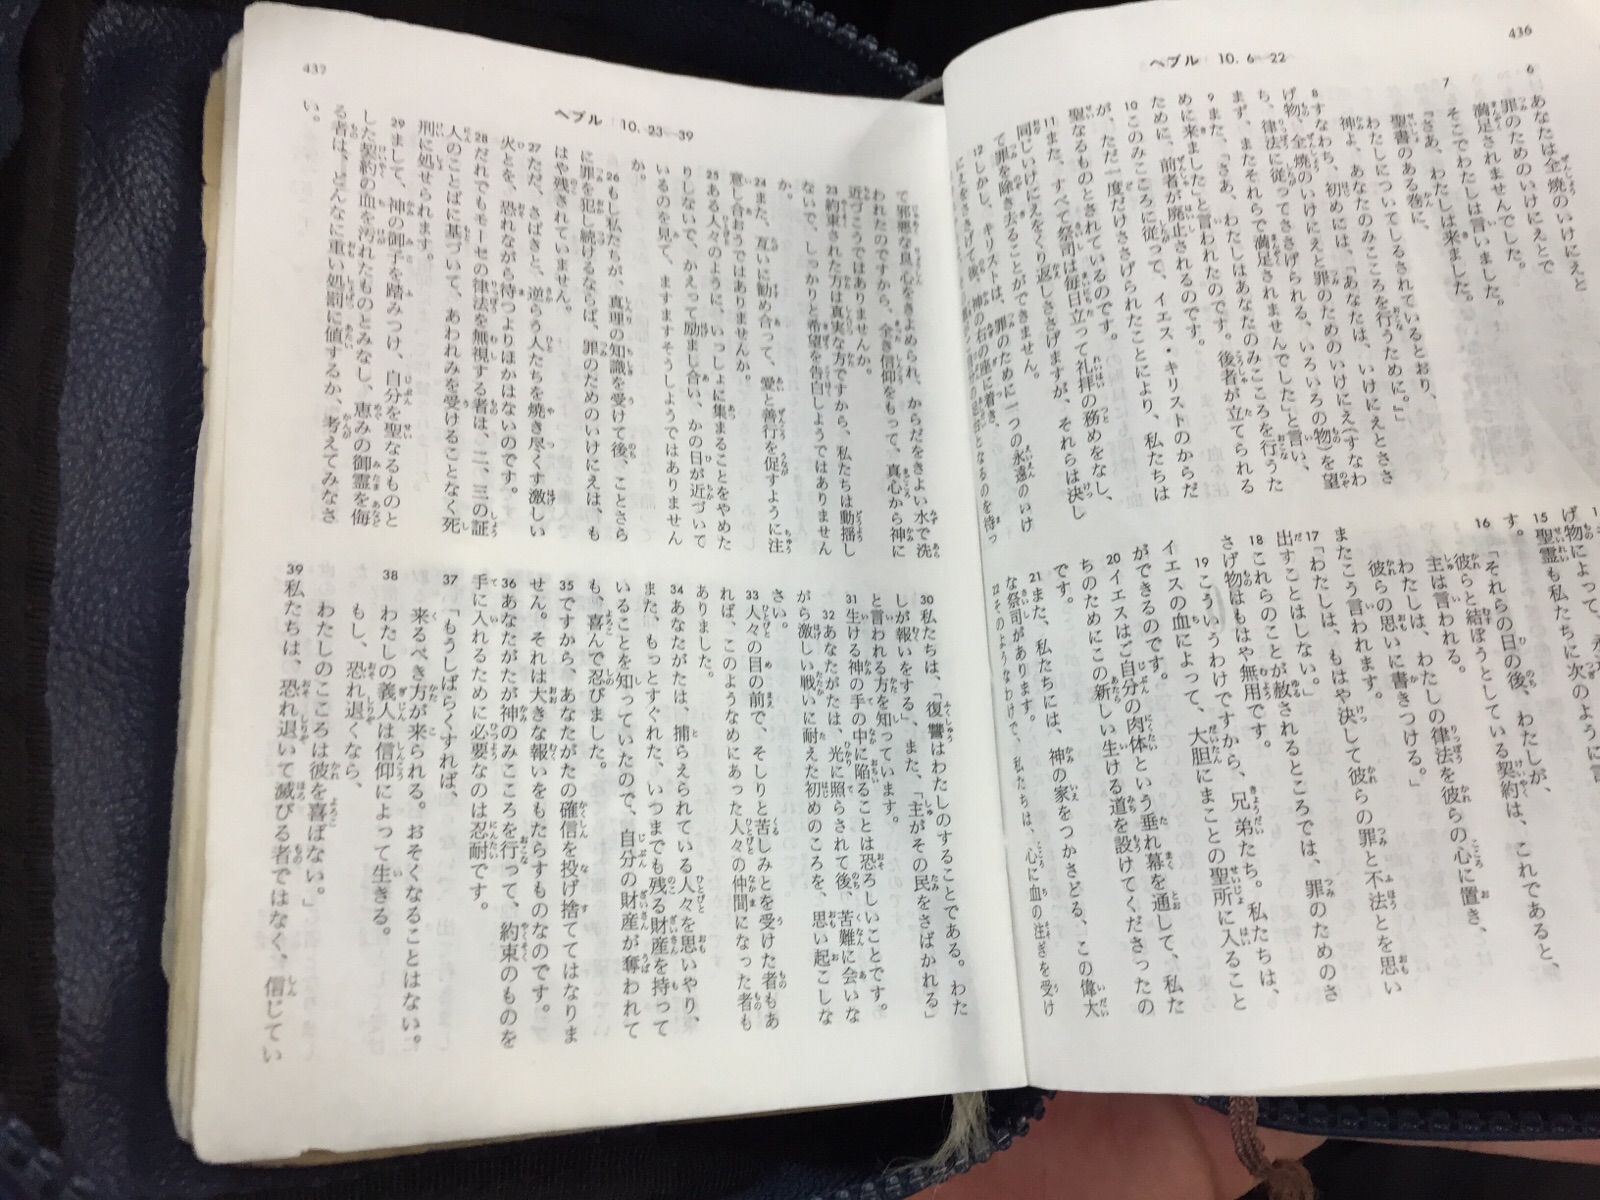 436
ヘブル 10. 6―22
6 あなたは全焼のいけにえと
罪のためのいけにえとで
満足されませんでした。
7 そこでわたしは言いました。
『さあ、わたしは来ました。
聖書のある巻に、
わたしについてしるされているとおり、
神よ、あなたのみこころを行うために。』」
8 すなわち、初めには、「あなたは、いけにえとささ
げ物、全焼のいけにえと罪のためのいけにえ(すなわ
ち、律法に従ってささげられる、いろいろの物)を望
まず、またそれらで満足されませんでした」と言い、
9 また、「さあ、わたしはあなたのみこころを行うた
めに来ました」と言われたのです。後者が立てられる
ために、前者が廃止されるのです。
10 このみこころに従って、イエス・キリストのからだ
が、ただ一度だけささげられたことにより、私たちは
聖なるものとされているのです。
11 また、すべて祭司は毎日立って礼拝の務めをなし、
同じいけにえをくり返しささげますが、それらは決し
て罪を除き去ることができません。
12 しかし、キリストは、罪のために一つの永遠のいけ
にえをささげて後、神の右の座に着き、
となるのを待っ
げ物によって、
15 聖霊も私たちに次のように
す。
16 「それらの日の後、わたしが、
彼らと結ぼうとしている契約は、これであると、
主は言われる。
わたしは、わたしの律法を彼らの心に置き、
彼らの思いに書きつける。」
またこう言われます。
17 「わたしは、もはや決して彼らの罪と不法とを思い
出すことはしない。」
18 これらのことが赦されるところでは、罪のためのさ
さげ物はもはや無用です。
19 こういうわけですから、兄弟たち。私たちは、
イエスの血によって、大胆にまことの聖所に入ること
ができるのです。
20 イエスはご自分の肉体という垂れ幕を通して、私た
ちのためにこの新しい生ける道を設けてくださったの
です。
21 また、私たちには、神の家をつかさどる、この偉大
な祭司があります。
22 そのようなわけで、私たちは、心に血の注ぎを受け
437
ヘブル 10. 23―39
て邪悪な良心をきよめられ、からだをきよい水で洗
われたのですから、全き信仰をもって、真心から神に
近づこうではありませんか。
23 約束された方は真実な方ですから、私たちは動揺し
ないで、しっかりと希望を告白しようではありません
か。
24 また、互いに勧め合って、愛と善行を促すように注
意し合おうではありませんか。
25 ある人々のように、いっしょに集まることをやめた
りしないで、かえって励まし合い、かの日が近づいて
いるのを見て、ますますそうしようではありません
か。
26 もし私たちが、真理の知識を受けて後、ことさら
に罪を犯し続けるならば、罪のためのいけにえは、も
はや残されていません。
27 ただ、さばきと、逆らう人たちを焼き尽くす激しい
火とを、恐れながら待つよりほかはないのです。
28 だれでもモーセの律法を無視する者は、二、三の証
人のことばに基づいて、あわれみを受けることなく死
刑に処せられます。
29 まして、神の御子を踏みつけ、自分を聖なるものと
した契約の血を汚れたものとみなし、恵みの御霊を侮
る者は、どんなに重い処罰に値するか、考えてみなさ
い。
30 私たちは、「復讐はわたしのすることである。わた
しが報いをする」、また、「主がその民をさばかれる」
と言われる方を知っています。
31 生ける神の手の中に陥ることは恐ろしいことです。
32 あなたがたは、光に照らされて後、苦難に会いな
がら激しい戦いに耐えた初めのころを、思い起こしな
さい。
33 人々の目の前で、そしりと苦しみとを受けた者もあ
れば、このようなめにあった人々の仲間になった者も
ありました。
34 あなたがたは、捕らえられている人々を思いやり、
また、もっとすぐれた、いつまでも残る財産を持って
いることを知っていたので、自分の財産が奪われて
も、喜んで忍びました。
35 ですから、あなたがたの確信を投げ捨ててはなりま
せん。それは大きな報いをもたらすものなのです。
36 あなたがたが神のみこころを行って、約束のものを
手に入れるために必要なのは忍耐です。
37 「もうしばらくすれば、
来るべき方が来られる。おそくなることはない。
38 わたしの義人は信仰によって生きる。
もし、恐れ退くなら、
わたしのこころは彼を喜ばない。」
39 私たちは、恐れ退いて滅びる者ではなく、信じてい